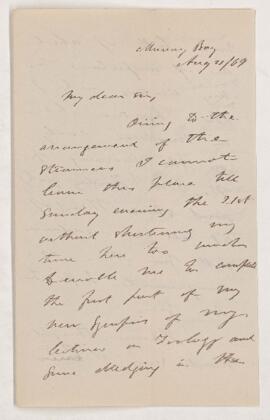 Murray Bay
Aug 20/69
My dear Sir,
Owing to the
arrangement of the
Steamers I cannot
leave this place till
Sunday evening the 21st
without shortening my
time here too much
to enable me to complete
the first part of my
new Synopsis of my
lectures on Zoology and
some dredging in the